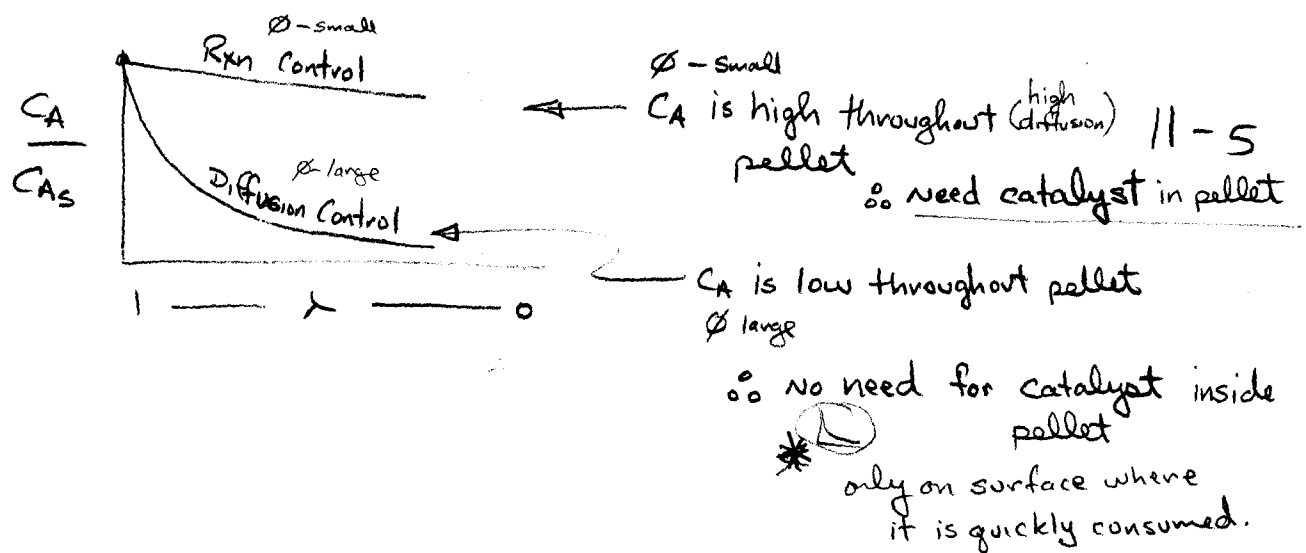 Ø-small
Rxn Control
CA
CAs
Ø-large
Diffusion Control
1 λ 0
Ø-small
CA is high throughout (high diffusion)
pellet
∴ Need catalyst in pellet
11-5
CA is low throughout pellet
Ø large
∴ No need for catalyst inside
pellet
*
only on surface where
it is quickly consumed.